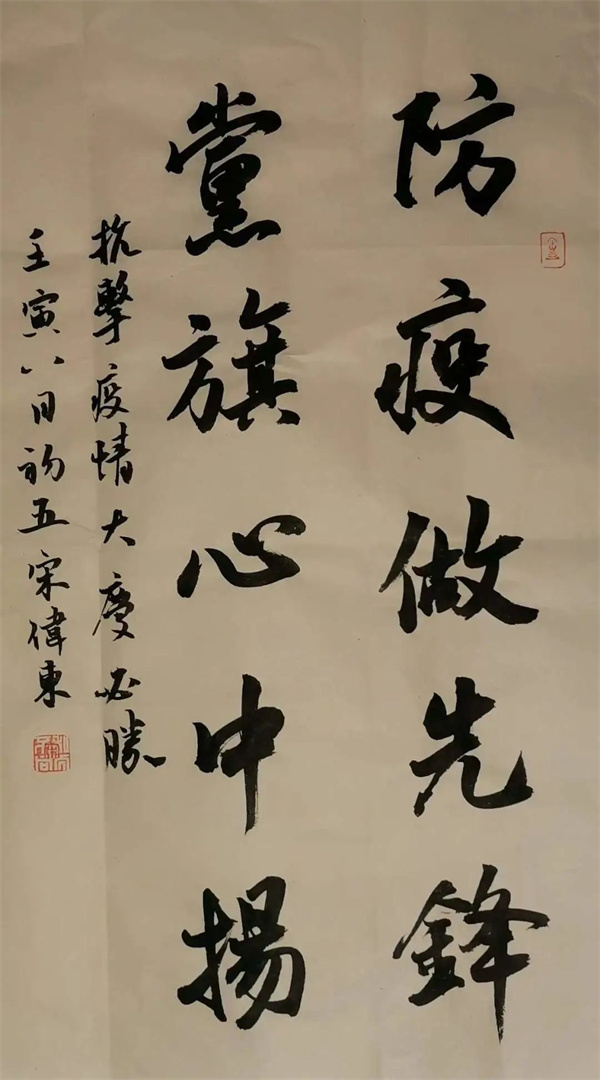 防疫做先鋒
黨旗心中揚
抗擊疫情大慶必勝
壬寅八月初五宋偉東